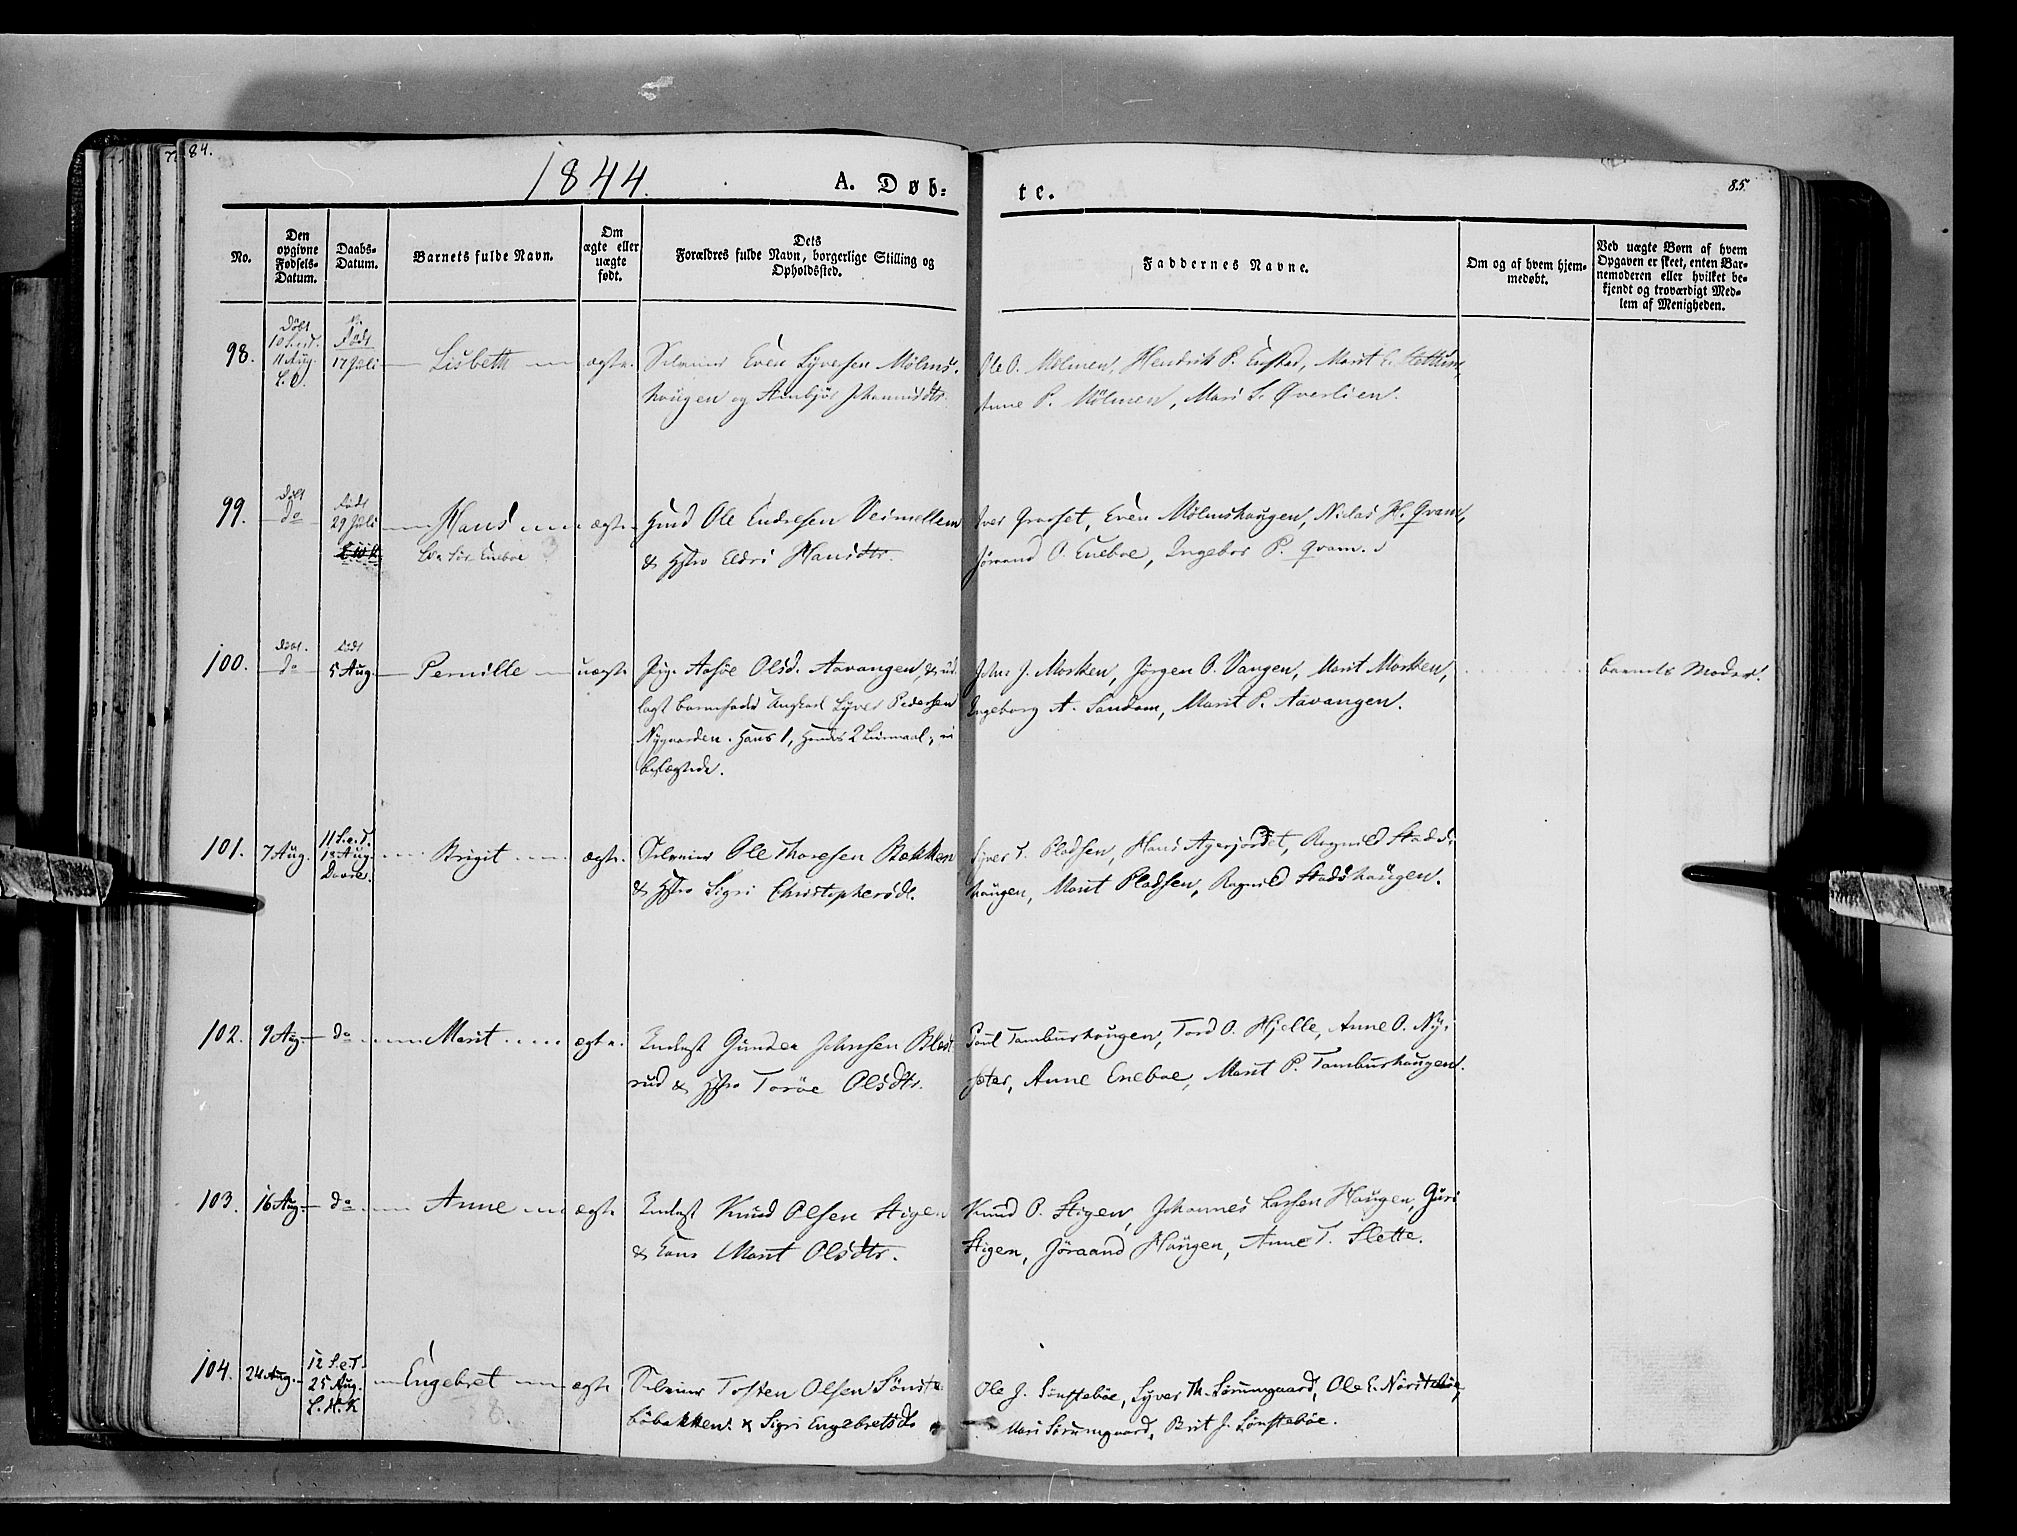 84.
1844.
A. Døb=
te.
85.
No.
Den opgivne Fødsels-Datum.
Daabs-Datum.
Barnets fulde Navn.
Om ægte eller uægte født.
Dets Forældres fulde Navn, borgerlige Stilling og Opholdssted.
Faddernes Navne.
Om og af hvem hjemmedøbt.
Ved uægte Børn af hvem Opgaven er skeet, enten Barnemoderen eller hvilket bekjendt og troværdigt Medlem af Menigheden.
98. Døbt 11 Aug. Født 17 Juli Lisbeth ægte Even Syversen Mølms-
haugen og Anbjør Johannisdtr.
Ole O. Mølmen, Hendrik P. Enstad, Marit E.
Anne P. Mølmen, Mari S. Øverlien.
99. Døbt do Født 29 Juli Hans ægte Ole Endresen
& Hstro Eldri Hansdtr.
Iver Enebo
Iver Graaset, Even Mølmshaugen, Niclas H. Qvam,
Jøraand O. Eneboe, Ingebor P. Qvam.
100. Døbt. do Født 5 Aug. Pernille uægte Pige Aasøe Olsd. Aavangen, & ud-
lagt barnefader Ungkarl Syver Pedersen
Nygaarden. Hans 1, Hendes 2 Leiermaal;
beslægtede.
John J. Morken, Jørgen O. Vangen, Marit Morken,
Ingeborg A. Sandom, Marit P. Aavangen.
barnets Moder.
101. 7 Aug. 11 S. e. T. 18 Aug. Brigit ægte Ole Thoresen Bækken
& Hstro Sigri Christophersdt.
Syver T. Pladsen, Hans Agerjordet, Ragnild Stads-
haugen, Marit Pladsen, Ragnild Stadshaugen.
102. 9 Aug. do Marit ægte Inderst Gunder Johnsen
rud & Hstro Torøe Olsdtr.
Poul Tamburhaugen, Tord O. Hjelle, Anne O. Ny-
Anne Eneboe, Marit P. Tamburhaugen.
103. 16 Aug. do Anne ægte Inderst Knud Olsen Stigen
& Kone Marit Olsdtr.
Knud O. Stigen, Johannes Larsen Haugen, Guri
Stigen, Jøraand Haugen, Anne T. Slette.
104. 24 Aug. 12 S. e. T. 25 Aug. Engebret ægte Tosten Olsen Sønste-
bøbakken & Sigri Engebretsdt
Ole J. Sønstebøe, Syver Th. Sørumgaard, Ole E.
Mari Sørumgaard, Brit J. Sønstebøe.